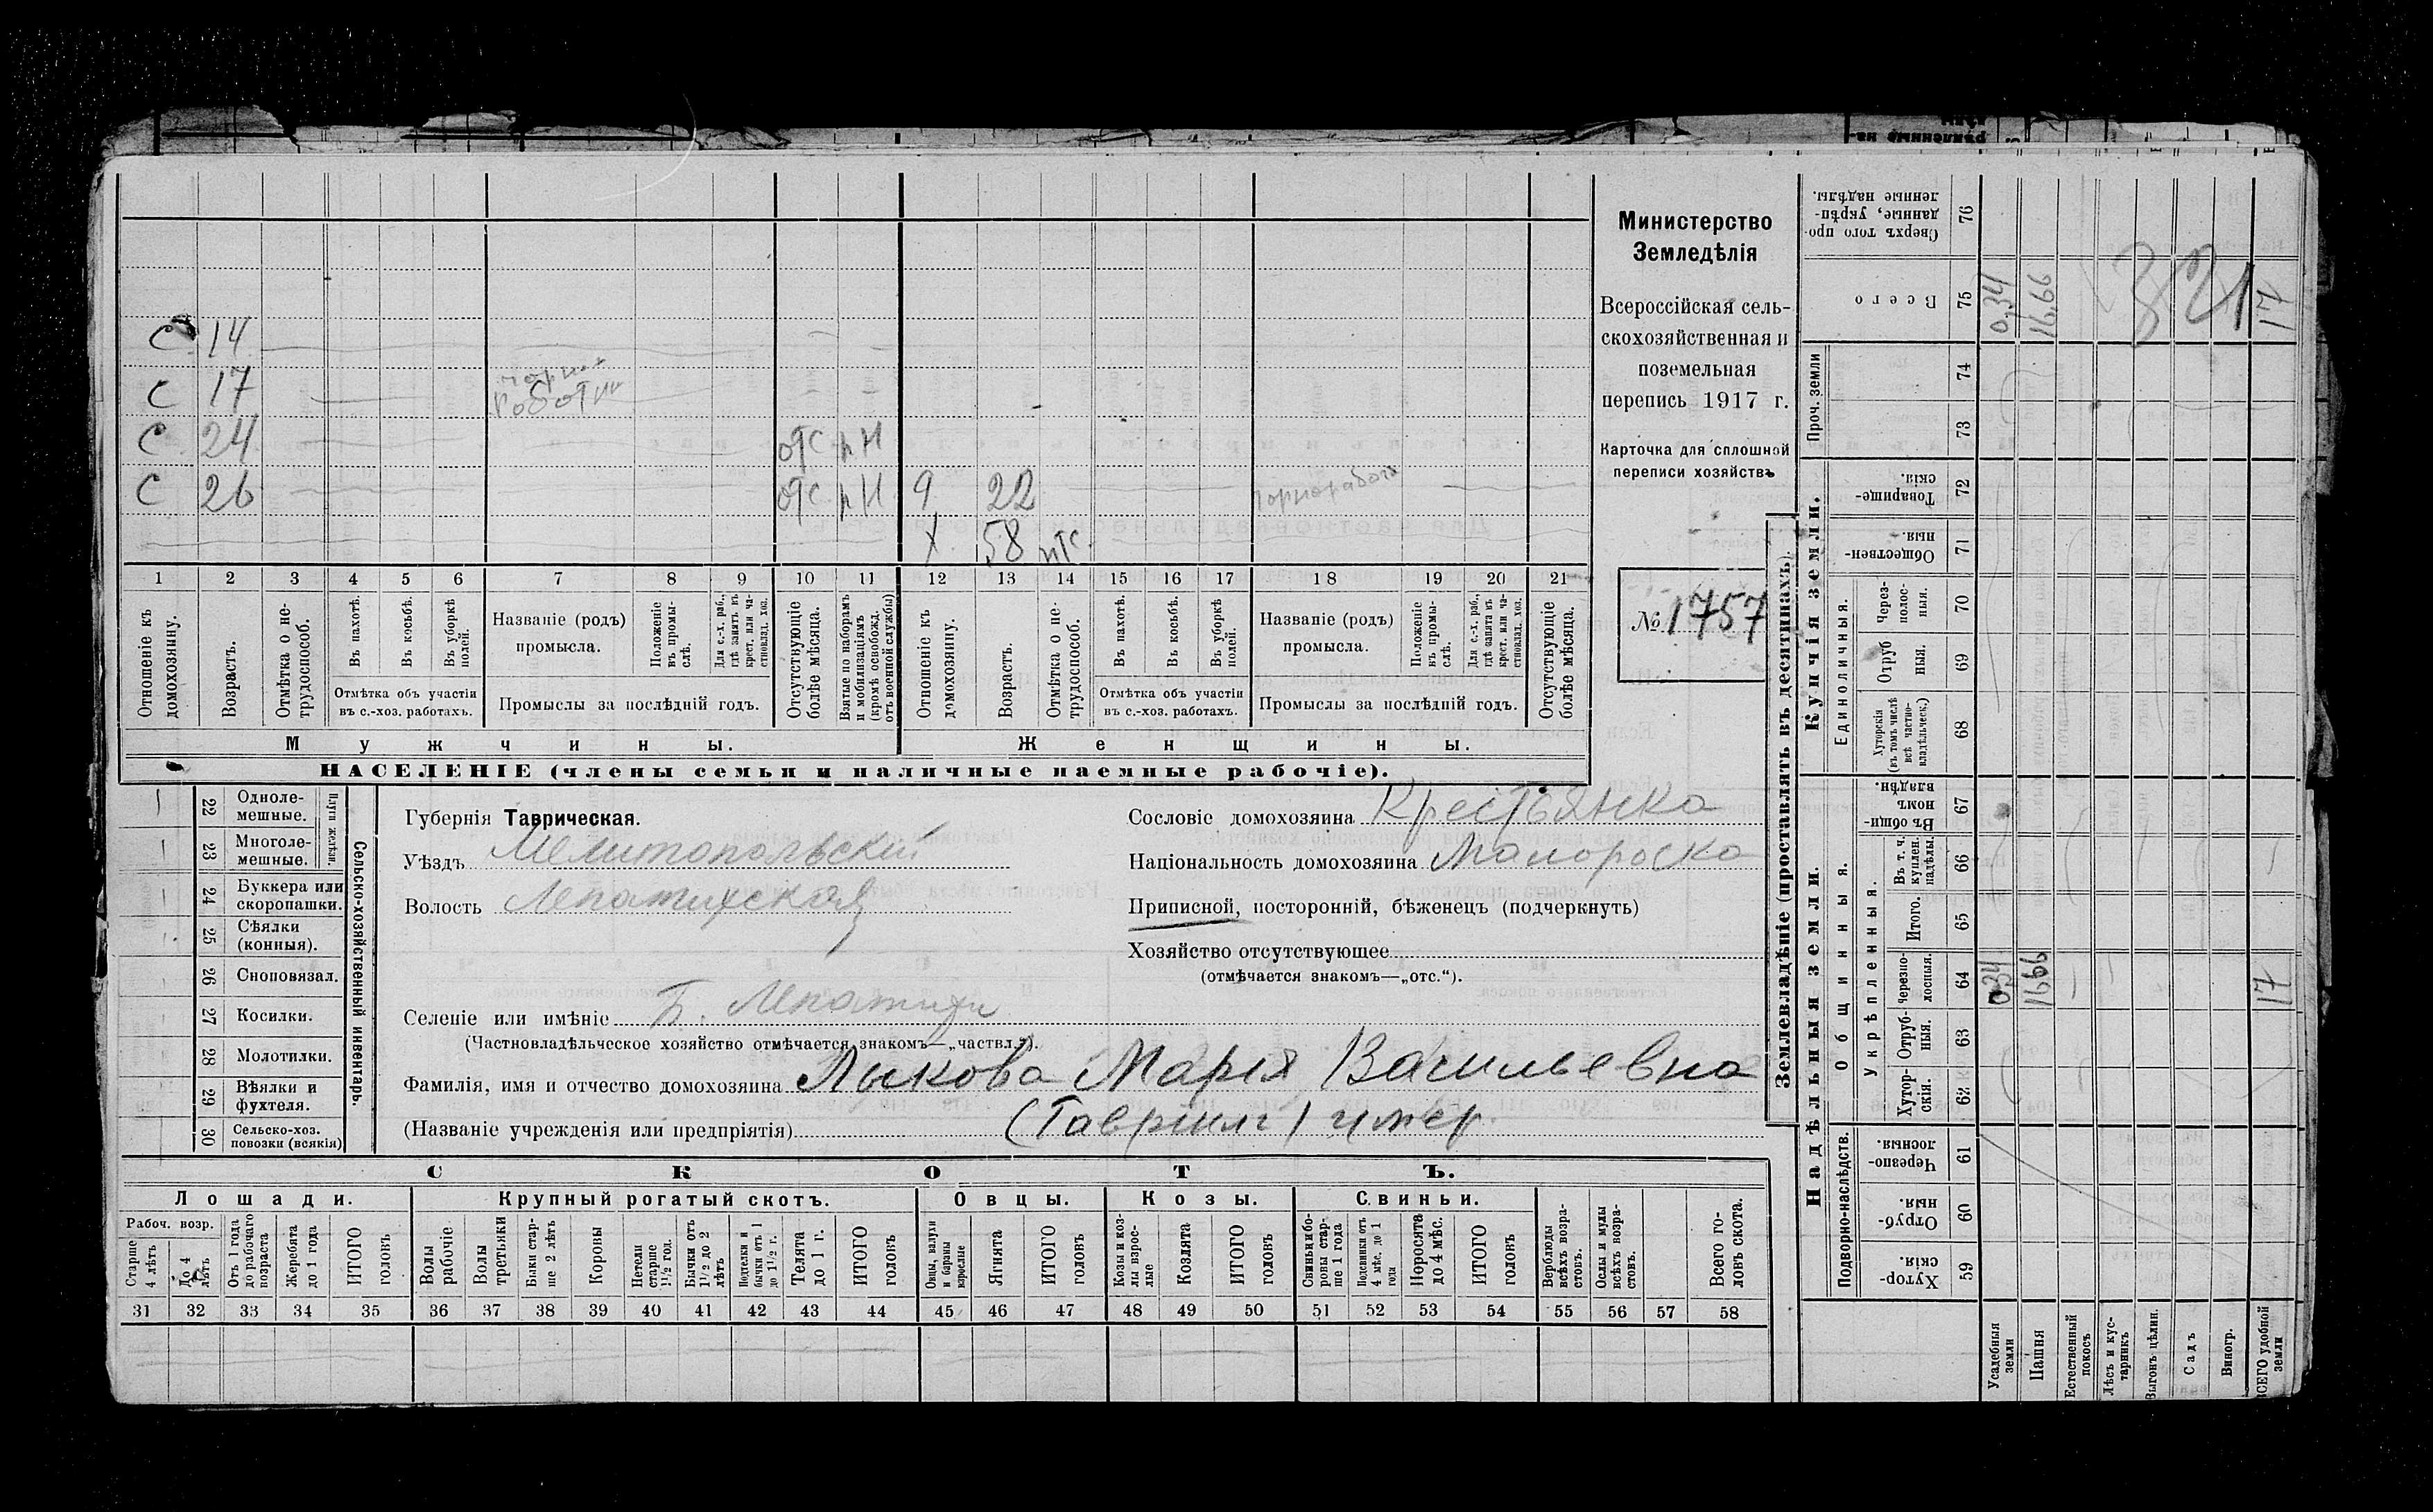 Министерство
Земледѣлія
Всероссійская сель-
скохозяйственная и
поземельная
перепись 1917 г.
Карточка для сплошной
переписи хозяйствъ
№ 1757
С 14
С 17
С 24 отс рН
С 26 отс рН 9 22
Х 58 нтс.
1 2 3 4 5 6 7 8 9 10 11 12 13 14 15 16 17 18 19 20 21
Отношеніе къ домохозяину.
Возрастъ.
Отмѣтка о не-трудоспособ.
Въ пахотѣ.
Въ косьбѣ.
Въ уборкѣ полей.
Отмѣтка объ участіи
въ с.-хоз. работахъ.
Названіе (родъ)
промысла.
Положеніе въ промы-слѣ.
Для с.-х. раб., гдѣ занятъ въ крест. или ча-стновлад. хоз.
Промыслы за послѣдній годъ.
Отсутствующіе болѣе мѣсяца.
Взятые по наборамъ и мобилизаціямъ (кромѣ освобожд. отъ военной службы)
Отношеніе къ домохозяину.
Возрастъ.
Отмѣтка о не-трудоспособ.
Въ пахотѣ.
Въ косьбѣ.
Въ уборкѣ полей.
Отмѣтка объ участіи
въ с.-хоз. работахъ.
Названіе (родъ)
промысла.
Положеніе въ промы-слѣ.
Для с.-х. раб., гдѣ занята въ крест. или ча-стновлад. хоз.
Промыслы за послѣдній годъ.
Отсутствующіе болѣе мѣсяца.
Мужчины.
Женщины.
НАСЕЛЕНІЕ (члены семьи и наличные наемные рабочіе).
22 Одноле-мешные.
23 Многоле-мешные.
Плуги желѣзн.
24 Буккера или скоропашки.
25 Сѣялки (конныя).
26 Сноповязал.
27 Косилки.
28 Молотилки.
29 Вѣялки и фухтеля.
30 Сельско-хоз. повозки (всякія)
Сельско-хозяйственный инвентарь.
Губернія Таврическая.
Уѣздъ Мелитопольскій
Волость Лепатихская
Селеніе или имѣніе Б. Лепатихи
(Частновладѣльческое хозяйство отмѣчается знакомъ—„частвл.“).
Фамилія, имя и отчество домохозяина Лыкова Марія Васильевна
(Названіе учрежденія или предпріятія) (Гавріилъ) умер.
Сословіе домохозяина Крестьянка
Національность домохозяина Малороска
Приписной, посторонній, бѣженецъ (подчеркнуть)
Хозяйство отсутствующее
(отмѣчается знакомъ—„отс.“).
СКОТЪ.
Лошади.
Крупный рогатый скотъ.
Овцы.
Козы.
Свиньи.
Рабоч. возр.
Старше 4 лѣтъ
До 4 лѣтъ
Отъ 1 года до рабочаго возраста
Жеребята до 1 года
ИТОГО головъ
Волы рабочіе
Волы третьяки
Быки стар-ше 2 лѣтъ
Коровы
Нетели старше 1½ год.
Бычки отъ 1½ до 2 лѣтъ
Подтелки и бычки отъ 1 до 1½ г.
Телята до 1 г.
ИТОГО головъ
Овцы, валухи и бараны взрослые
Ягнята
ИТОГО головъ
Козы и коз-лы взрос-лые
Козлята
ИТОГО головъ
Свиньи и бо-ровы стар-ше 1 года
Подсвинки отъ 4 мѣс. до 1 года
Поросята до 4 мѣс.
ИТОГО головъ
Верблюды всѣхъ возра-стовъ.
Ослы и мулы всѣхъ возра-стовъ.
Всего го-ловъ скота.
31 32 33 34 35 36 37 38 39 40 41 42 43 44 45 46 47 48 49 50 51 52 53 54 55 56 57 58
Землевладѣніе (проставлять въ десятинахъ).
Надѣльныя земли.
Купчія земли.
Проч. земли
Подворно-наслѣдств.
Общинныя.
Укрѣпленныя.
Единоличныя.
Сверхъ того про-данные, укрѣп-ленные надѣлы. 76
Всего 75 0,34 16,66 17
821
74
73
Товарище-скія. 72
Обществен-ныя. 71
Через-полос-ныя. 70
Отруб ныя. 69
Хуторскія (въ томъ числѣ всѣ частно-владѣльческ.) 68
Въ общин-номъ владѣн. 67
Въ т. ч. куплен. надѣлы. 66
Итого. 65
Черезпо-лосныя. 64 0,34 16,66 17
Отруб-ныя. 63
Хутор-скія. 62
Черезпо-лосныя. 61
Отруб-ныя. 60
Хутор-скія. 59
Усадебныя земли
Пашня
Естественный покосъ
Лѣсъ и кус-тарникъ
Выгонъ цѣлин.
Садъ
Виногр.
ВСЕГО удобной земли